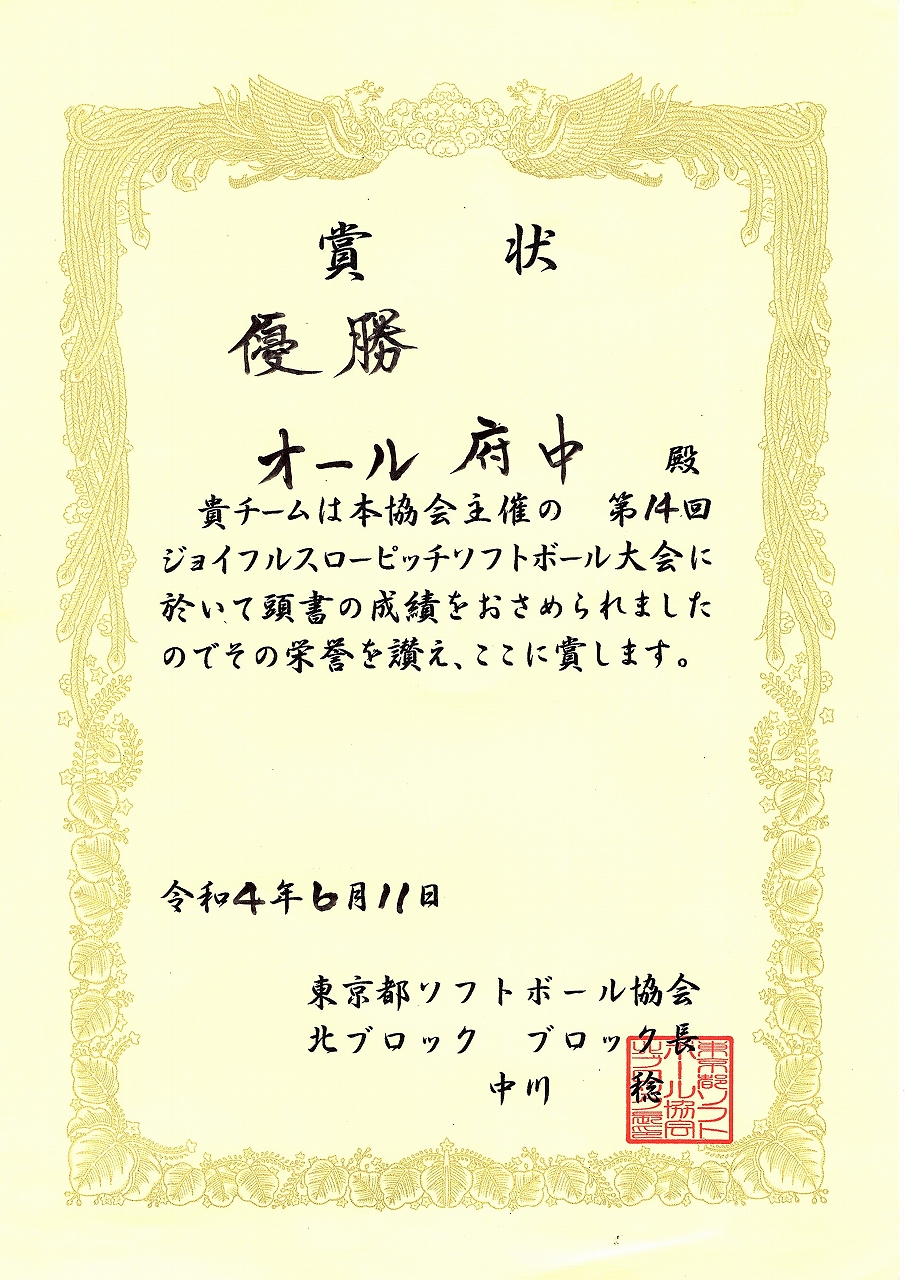 賞状
優勝
オール 府中 殿
貴チームは本協会主催の 第14回
ジョイフルスローピッチソフトボール大会に
於いて頭書の成績をおさめられました
のでその栄誉を讃え、ここに賞します。
令和4年6月11日
東京都ソフトボール協会
北ブロック ブロック長
中川 稔
東京都ソフト
ボール協会